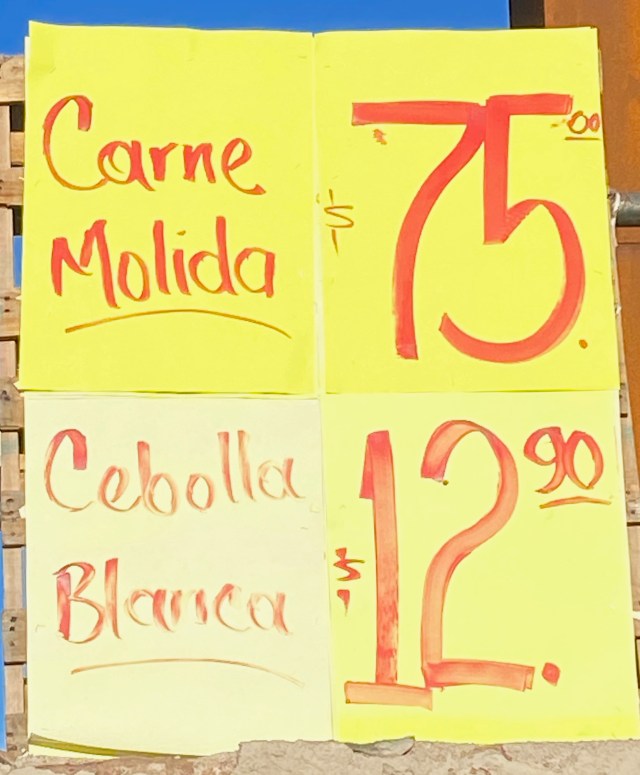 Carne
Molida
$ 75.00
Cebolla
Blanca
$ 12.90